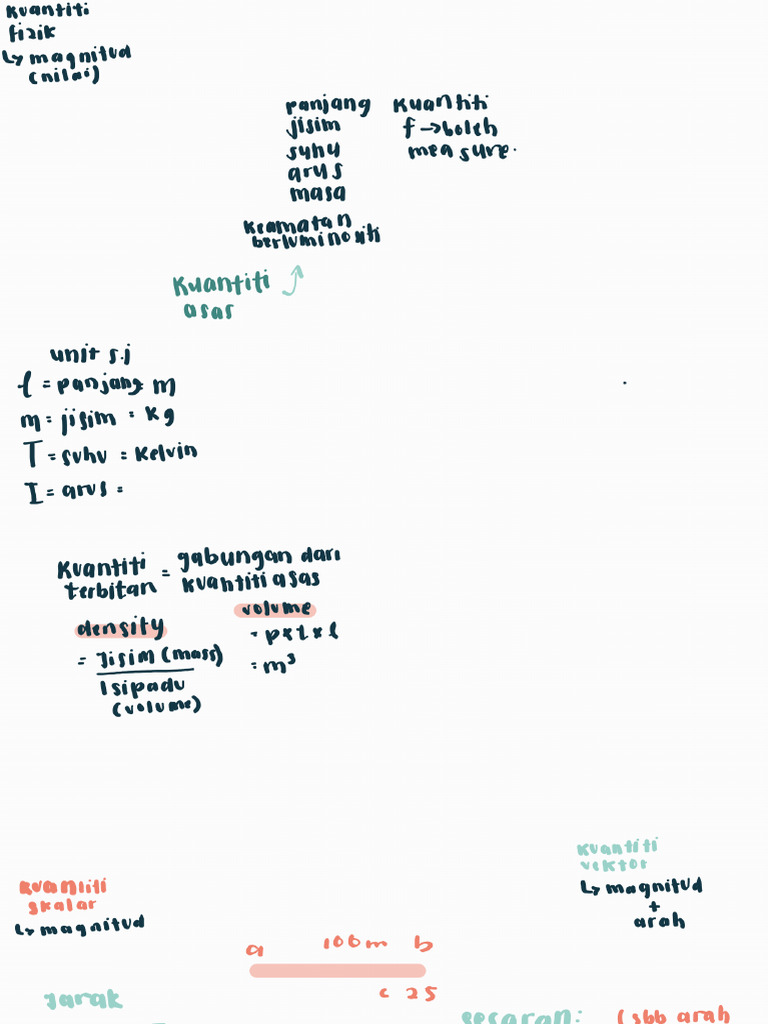 kuantiti
fizik
↳ magnitud
(nilai)
panjang
jisim
suhu
arus
masa
keamatan
berluminositi
kuantiti
f → boleh
measure.
kuantiti
asas
unit s.i
l = panjang = m
m = jisim = kg
T = suhu = kelvin
I = arus =
kuantiti terbitan = gabungan dari
kuantiti asas
density
= Jisim (mass)
Isipadu
(volume)
volume
= p x t x l
= m³
kuantiti
skalar
↳ magnitud
kuantiti
vektor
↳ magnitud
+
arah
a 100m b
c 25
Jarak
sesaran: (sbb arah